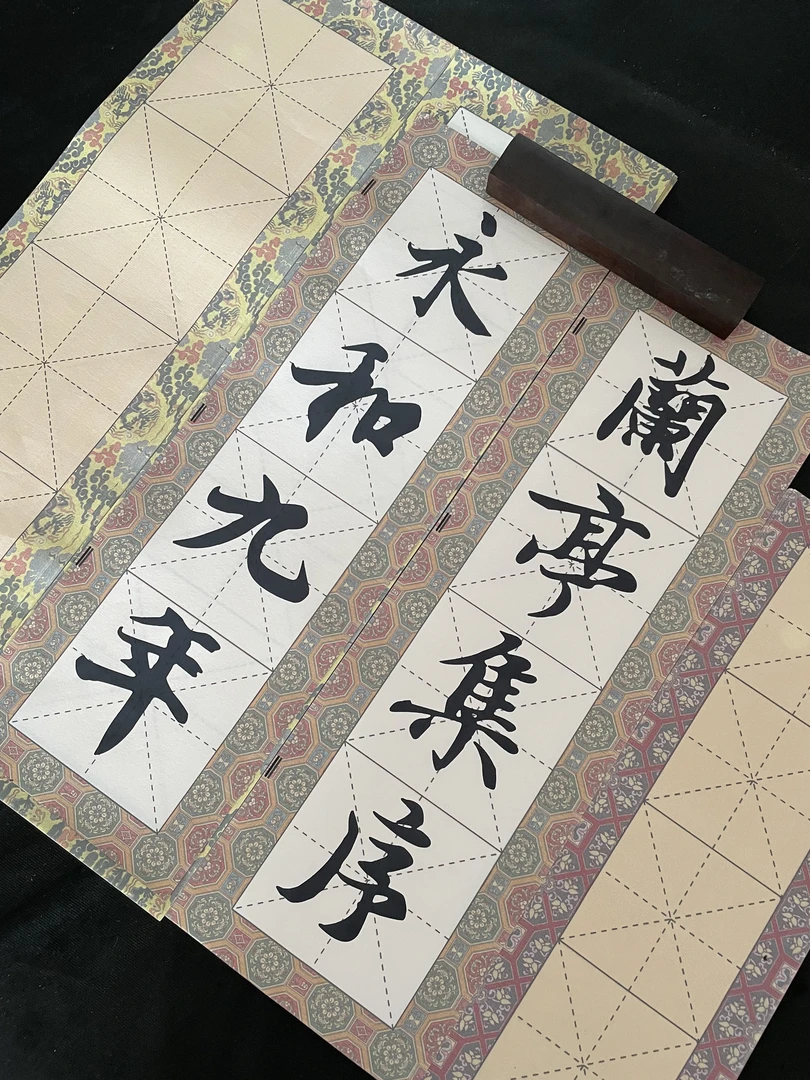 蘭亭集序
永和九年